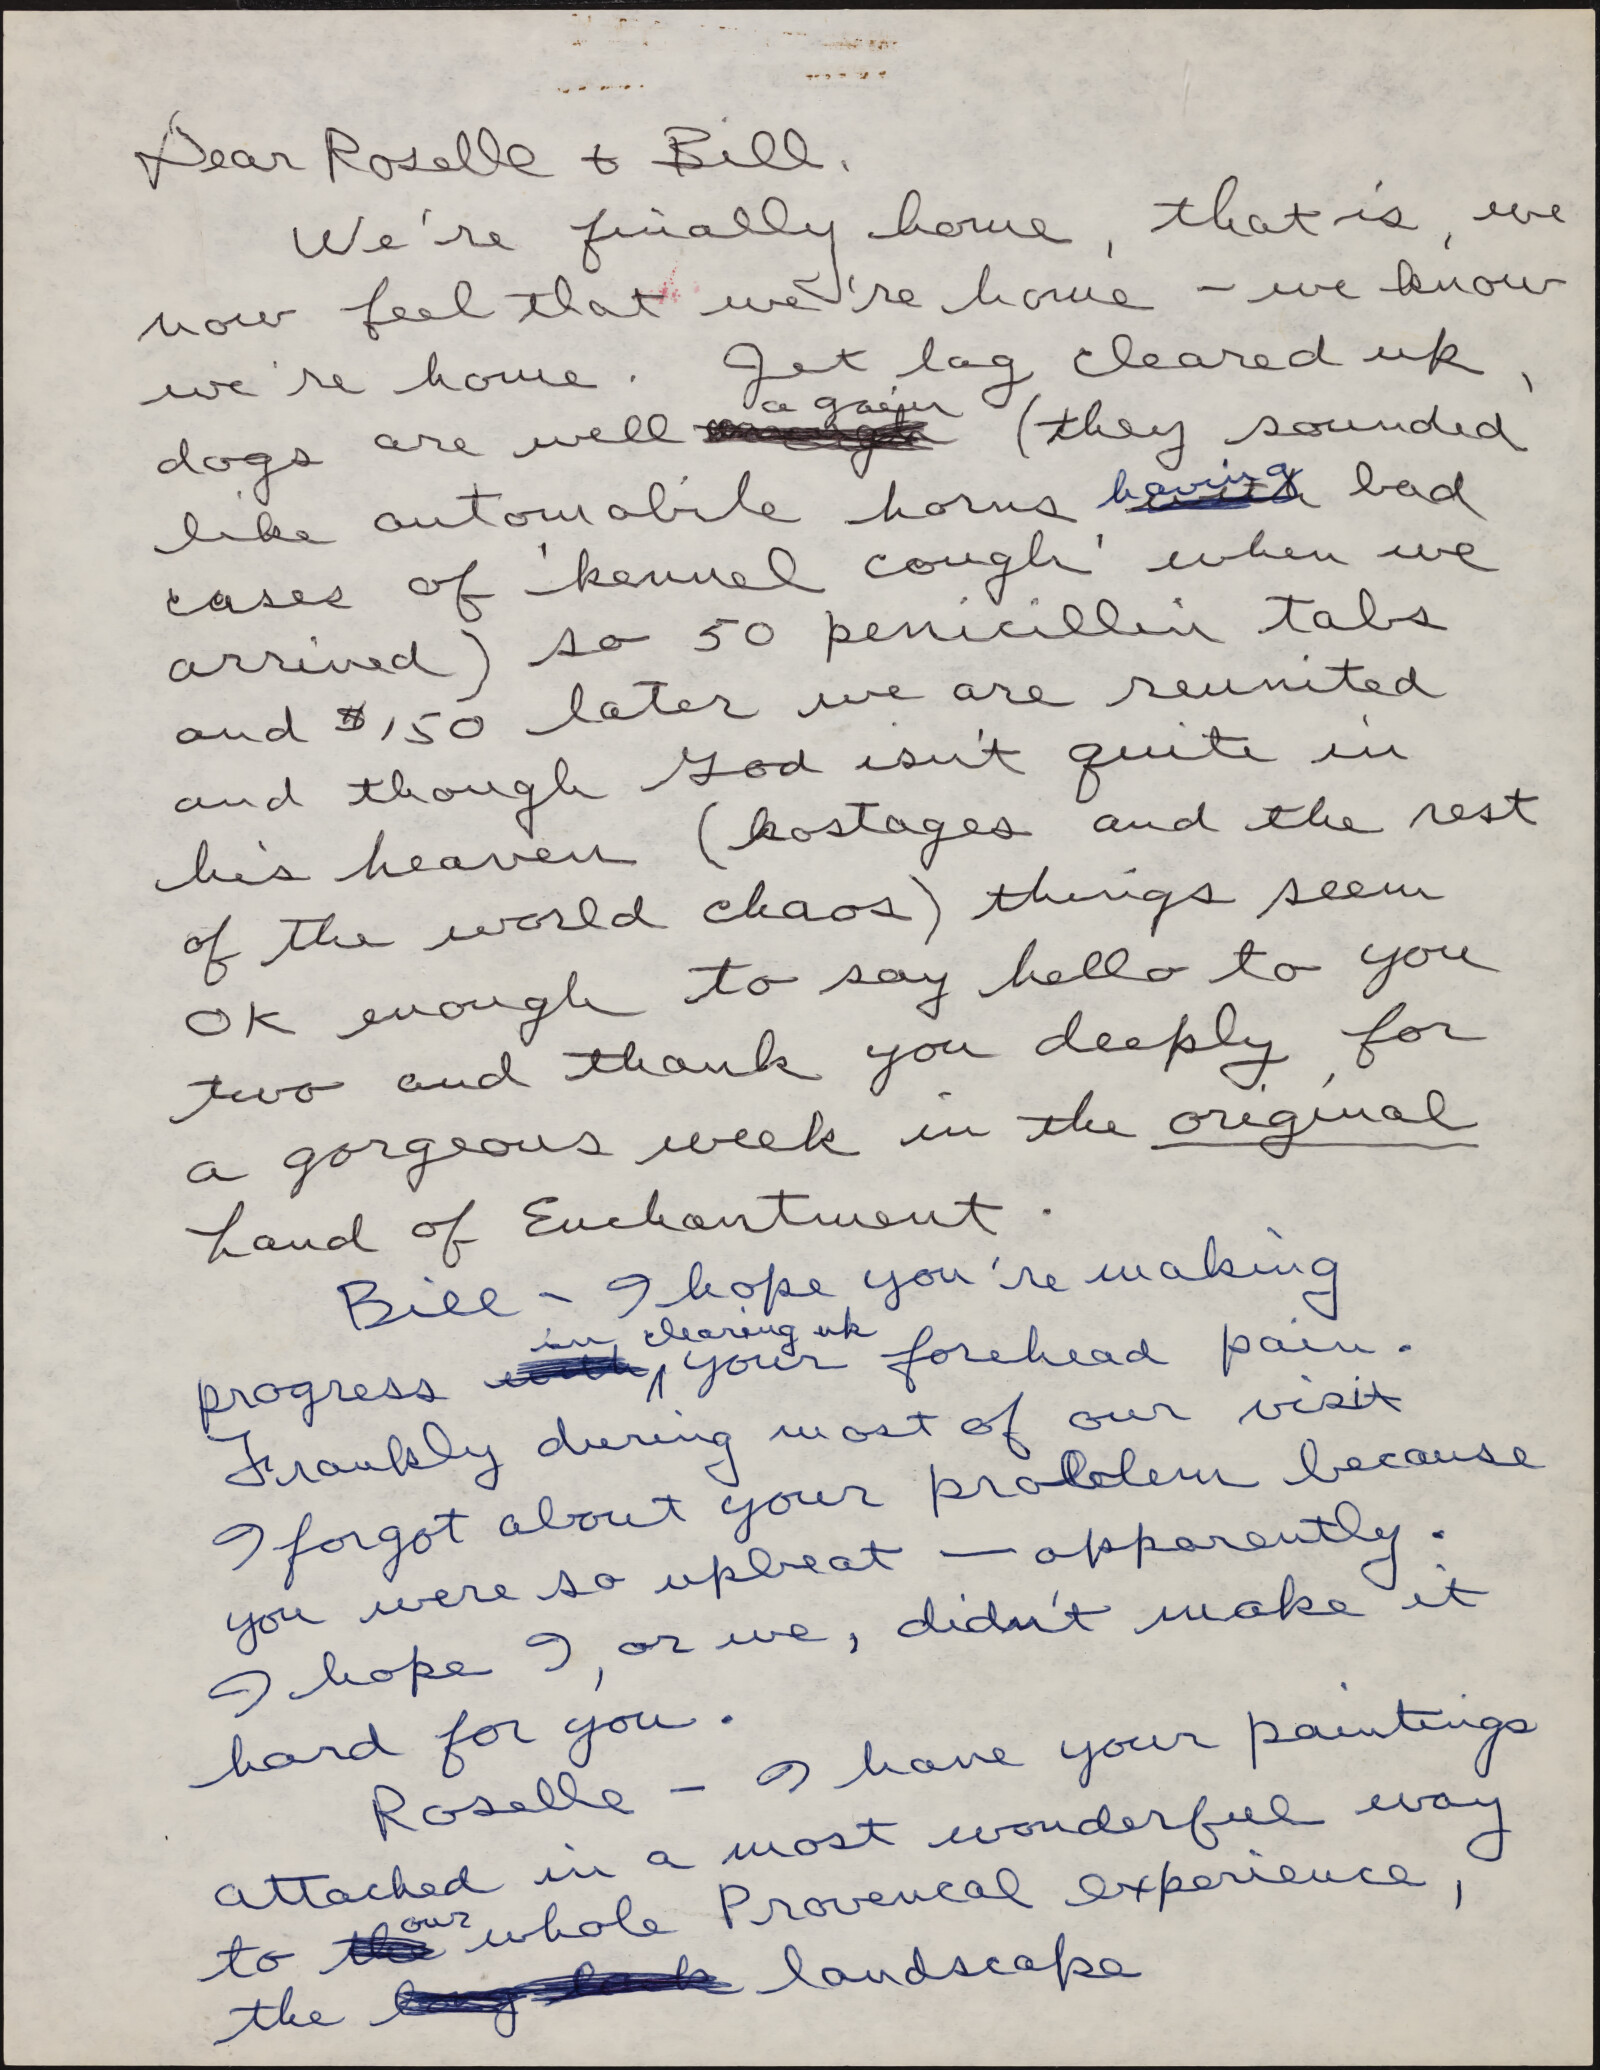 Dear Roselle & Bill.
We're finally home, that is, we
now feel that we're home – we know
we're home. Jet lag cleared up,
dogs are well again (they sounded
like automobile horns having bad
cases of 'kennel cough' when we
arrived) so 50 penicillin tabs
and $150 later we are reunited
and though God isn't quite in
his heaven (hostages and the rest
of the world chaos) things seem
OK enough to say hello to you
two and thank you deeply for
a gorgeous week in the original
Land of Enchantment.
Bill – I hope you're making
progress in clearing up your forehead pain.
Frankly during most of our visit
I forgot about your problem because
you were so upbeat — apparently.
I hope I, or we, didn't make it
hard for you.
Roselle – I have your paintings
attached in a most wonderful way
to our whole Provencal experience,
the landscape